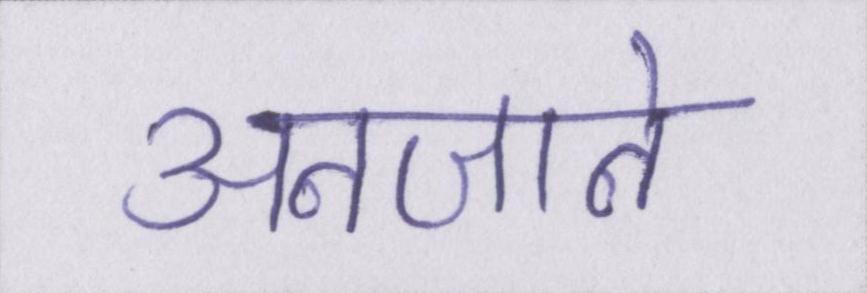 अनजाने